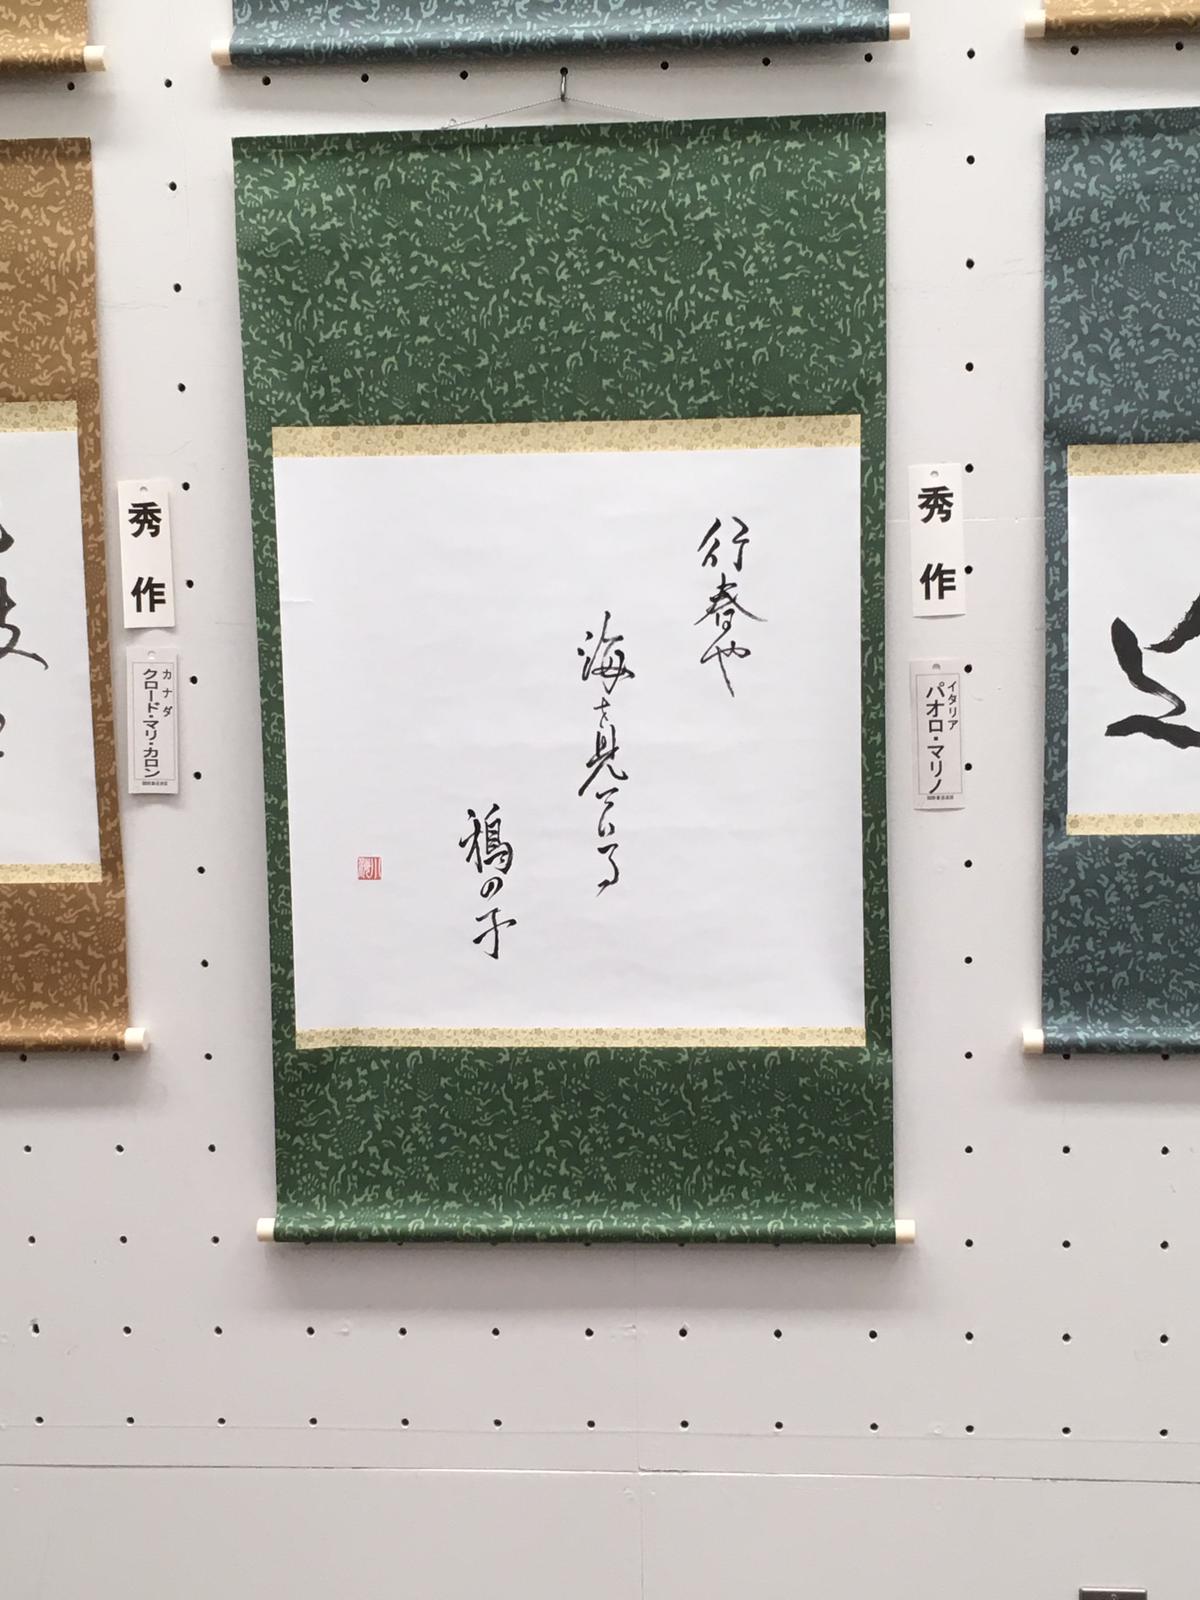 行春や
海を見ている
鴉の子
秀作
イタリア
パオロ・マリノ
秀作
カナダ
クロード・マリ・カロン